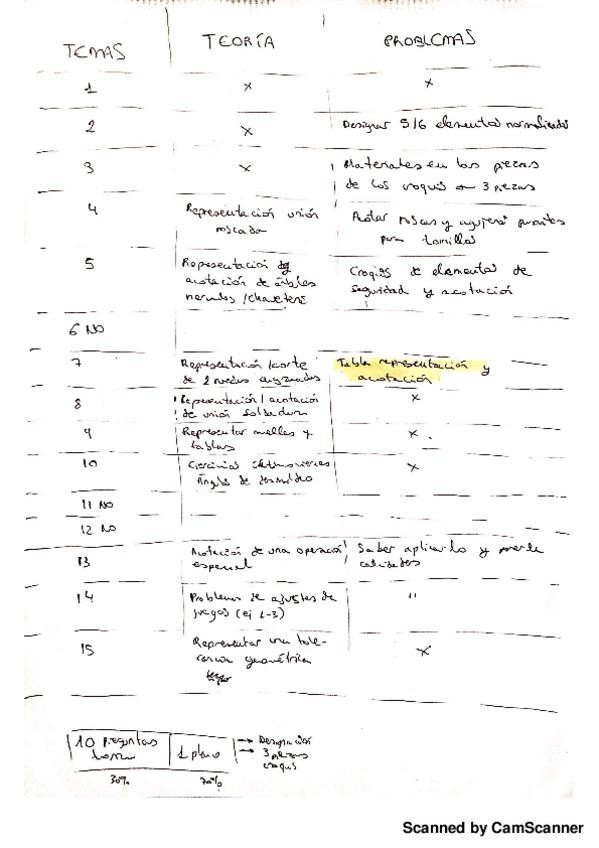 TEMAS TEORÍA PROBLEMAS
1 x x
2 x Designar 5/6 elementos normalizados
3 x Materiales en las piezas
de los croquis 3 piezas
4 Representación unión Acotar roscas y agujeros
roscada para tornillos
5 Representación Croquis de elementos de
acotación de árboles seguridad y acotación
nervados / chavetero
6 NO
7 Representación / corte Tabla representación y
de 2 ruedas engranadas acotación
8 Representación / acotación x
de unión soldadura
9 Representar muelles y x
tablas
10 Ejercicios x
Ángulo de
11 NO
12 NO
13 Acotación de una operación Saber aplicarlo y ponerle
especial calidades
14 Problemas de ajustes de "
juegos (ej L-3)
15 Representar una tole- x
rancia geométrica
10 preguntas 1 plano → Designación
→ 3 piezas
croquis
30% 70%
Scanned by CamScanner